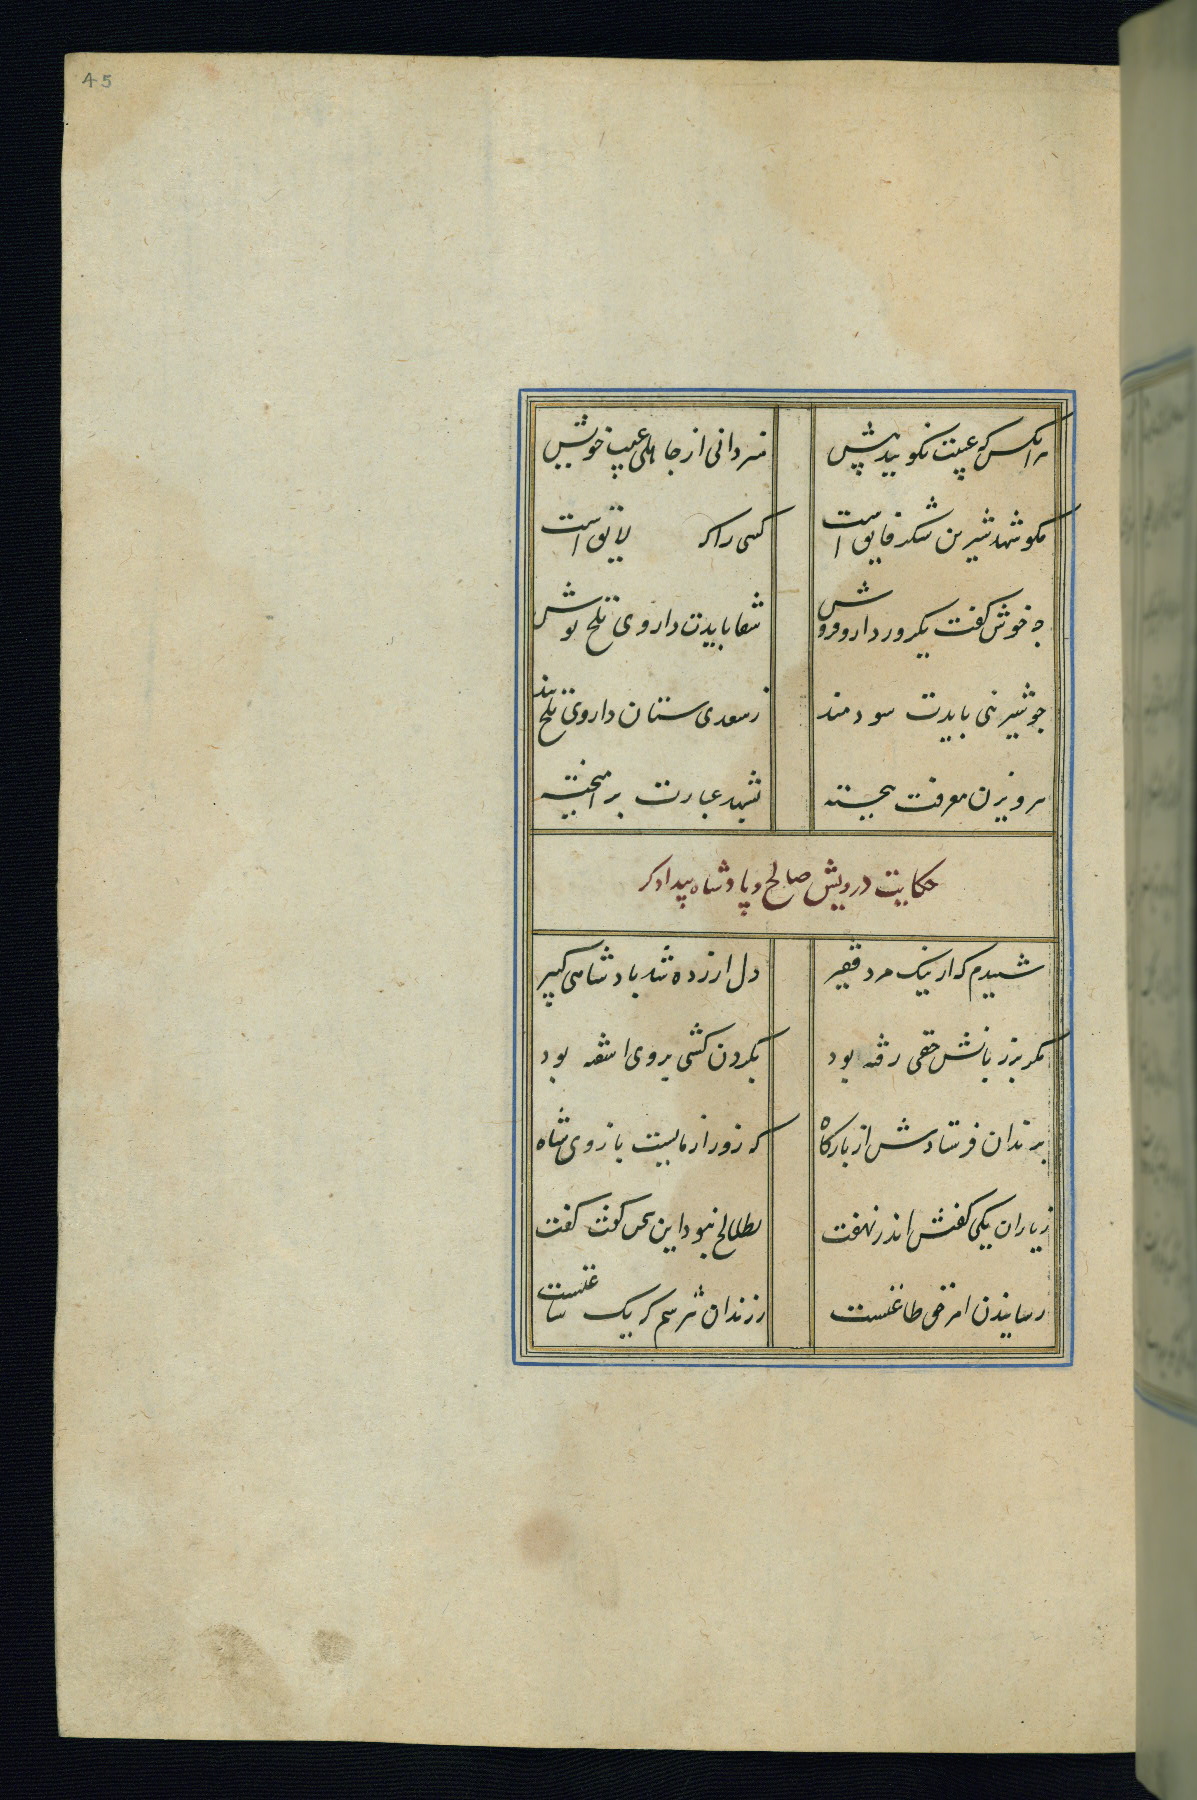 45
هر آنکس که عیبت نکویند پیش
نردانی از جاهلی عیب خویش
مکو شهد شیرین شکر فایق است
کسی را که لایق است
چه خوش کفت یکروز دارو فروش
شفا بایدت داروی تلخ نوش
چو شیرنی بایدت سودمند
ز سعدی ستان داروی تلخ پند
بپرویزن معرفت بیخته
بشهد عبارت برامیخته
حکایت درویش صالح و پادشاه بیدادکر
شنیدم که از نیک مرد فقیر
دل ازرده شد بادشاهی کبیر
مکر بر زبانش حقی رفته بود
بکردن کشی بروی اشفته بود
بزندان فرستادش از بارکاه
که زور ازمایست بازوی شاه
ز یاران یکی کفتش اندر نهفت
نبود این سخن کفت کفت
رسانیدن امر حق طاعتست
ز زندان نترسم که یک ساعتست